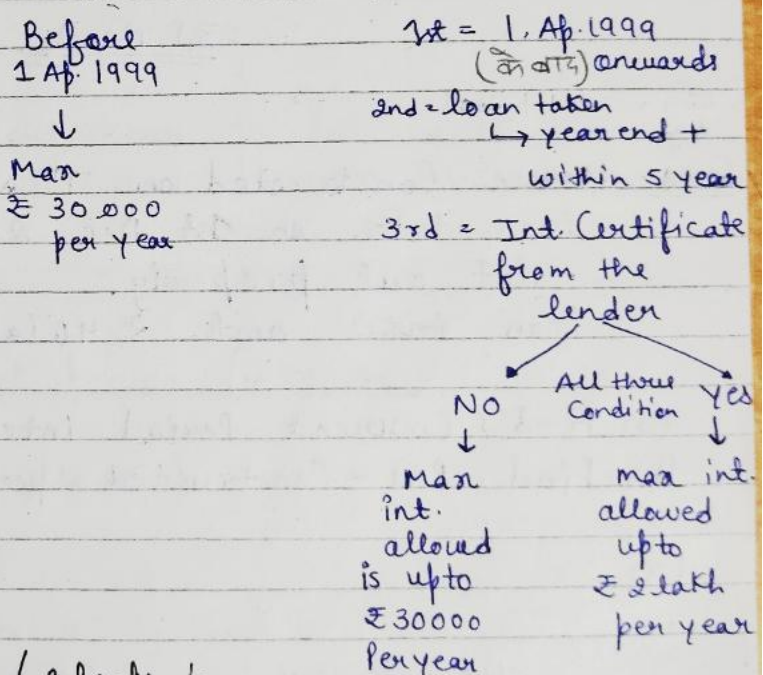 Before
1 Ap. 1999
↓
Max
₹ 30.000
per year
1st = 1. Ap. 1999
(के बाद) onwards
2nd = loan taken
↳ year end +
within 5 year
3rd = Int. Certificate
from the
lender
All three
Condition
NO
↓
Max
int.
allowed
is upto
₹ 30000
Per year
Yes
↓
max int.
allowed
upto
₹ 2 lakh
per year